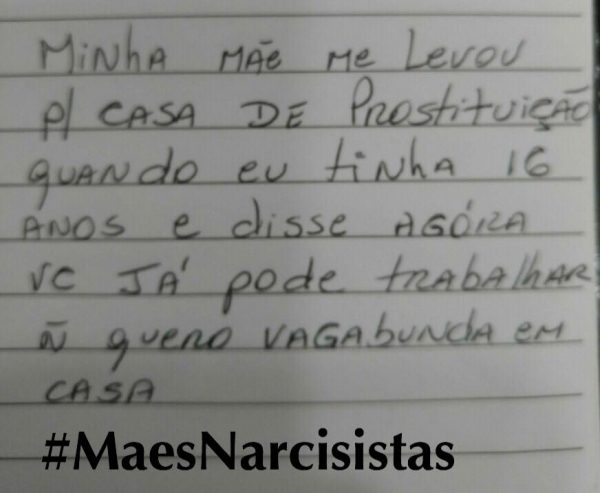 Minha mãe me levou
p/ casa de prostituição
quando eu tinha 16
anos e disse agóra
vc já pode trabalhar
ñ quero vagabunda em
casa
#MaesNarcisistas